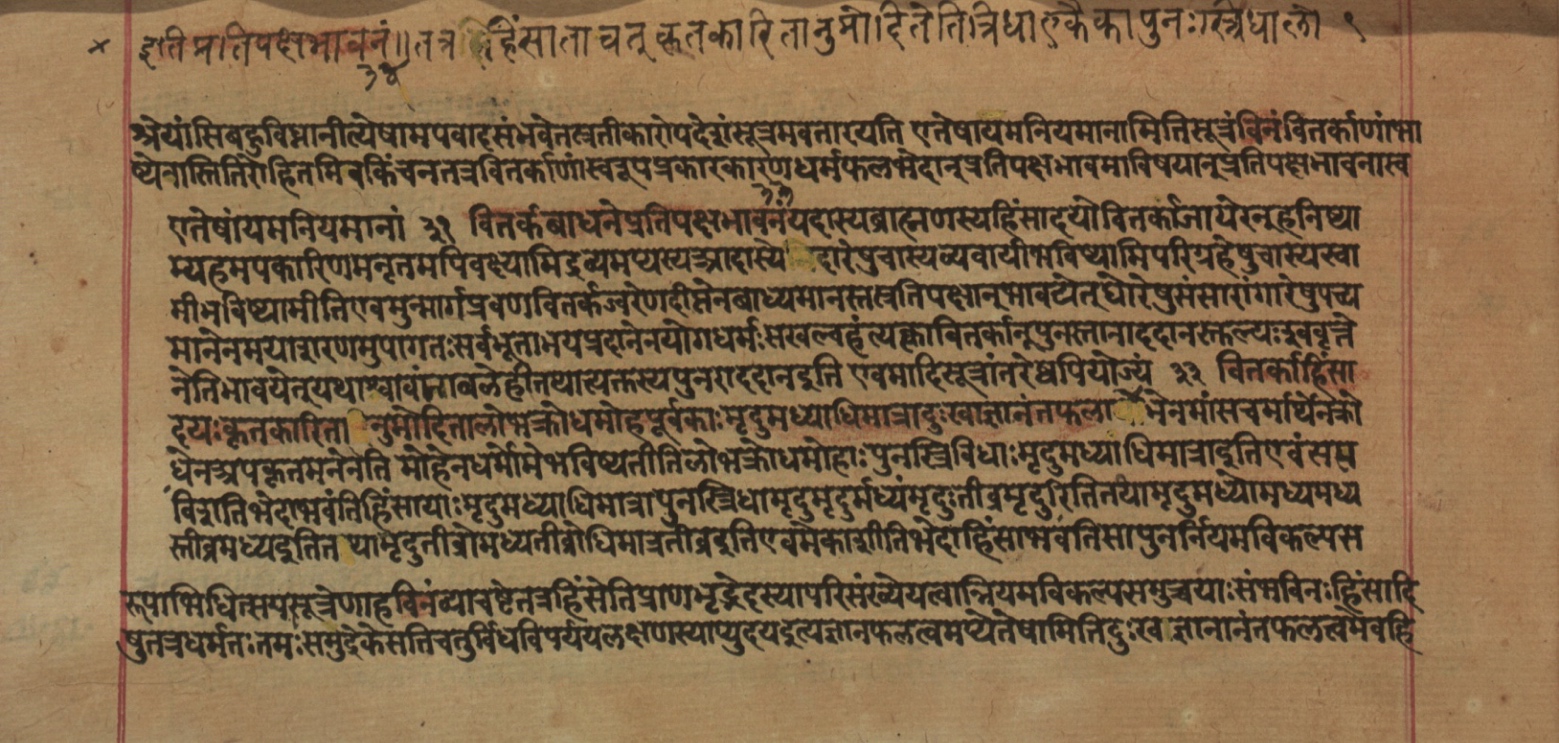 × इति प्रतिपक्षभावनं॥ तत्र हिंसा तावत् कृतकारितानुमोदितेति त्रिधा एकैका पुनः स्त्रिधा लो ९
३४
श्रेयांसिबहुविघ्नानीत्येषामपवादसंभवेतत्प्रतीकारोपदेशंसूत्रमवतारयति एतेषांयमनियमानामितिसूत्रंविनंवितर्काणांभा
ष्येनास्तितिरोहितमिवकिंचनतत्रवितर्काणांस्वरूपप्रकारकारणधर्मफलभेदान्प्रतिपक्षभावमाविषयान्प्रतिपक्षभावनास्व
३३
एतेषांयमनियमानां ३२ वितर्कबाधनेप्रतिपक्षभावनंयदास्यब्राह्मणस्यहिंसादयोवितर्काजायेरन्हनिष्या
म्यहमपकारिणमनृतमपिवक्ष्यामिद्रव्यमप्यस्यआदास्ये दारेषुचास्यव्यवायीभविष्यामिपरिग्रहेषुचास्यस्वा
मीभविष्यामीतिएवमुन्मार्गप्रवणवितर्कज्वरेणदीप्तेनबाध्यमानस्तत्प्रतिपक्षान्भावयेत्घोरेषुसंसारांगारेषुपच्य
मानेनमयाशरणमुपागतःसर्वभूताभयप्रदानेनयोगधर्मःसखल्वहंत्यक्त्वावितर्कान्पुनस्तानाददानस्तुल्यःश्ववृत्ते
नेतिभावयेत्यथाश्वावांतावलेहीतथात्यक्तस्यपुनराददानइति एवमादिसूत्रांतरेष्वपियोज्यं ३३ वितर्काहिंसा
दयःकृतकारिता नुमोदितालोभक्रोधमोहपूर्वकाःमृदुमध्याधिमात्रादुःखाज्ञानंतफला भेनमांसचर्मार्थेनक्रो
धेनअपकृतमनेनेति मोहेनधर्मोमेभविष्यतीतिलोभक्रोधमोहाःपुनस्त्रिविधाःमृदुमध्याधिमात्राइतिएवंसप्त
विंशतिभेदाभवंतिहिंसायाःमृदुमध्याधिमात्रापुनस्त्रिधामृदुमृदुर्मध्यंमृदुःतीव्रमृदुरितितथामृदुमध्योमध्यमध्य
स्तीव्रमध्यइतित थामृदुतीव्रोमध्यतीव्रोधिमात्रतीव्रइतिएवमेकाशीतिभेदाहिंसाभवतिसापुनर्नियमविकल्पस
रूपाभिधित्सयासूत्रेणाहविनंव्याचष्टेतत्रहिंसेतिप्राणभृद्भेदस्यापरिसंख्येयत्वान्नियमविकल्पसमुच्चयाःसंभविनःहिंसादि
षुतत्रधर्मतःतमःसमुद्रेकेसतिचतुर्विधविपर्ययलक्षणस्याप्युदयइत्यज्ञानफलत्वमप्येतेषामितिदुःख ज्ञानानंतफलत्वमेवहि